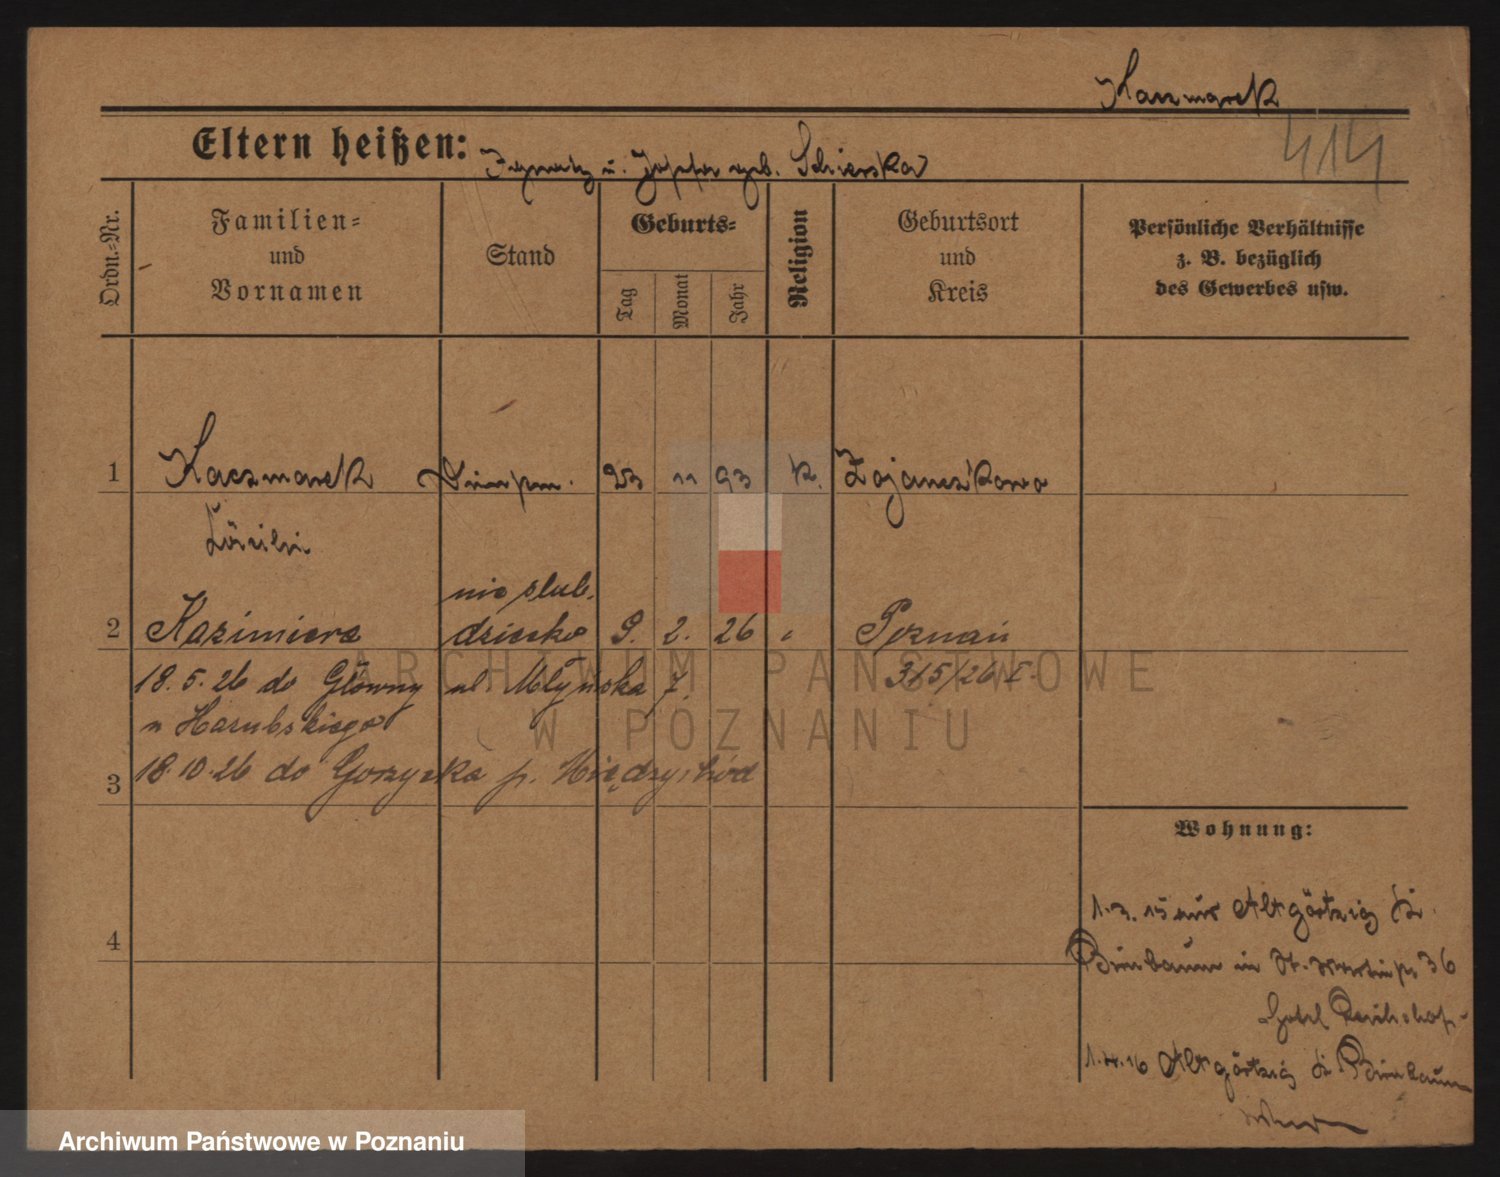 Kaczmarek
414
Eltern heißen: Ignatz u. Josefa geb.
Ordn.-Nr.
Familien-
und
Vornamen
Stand
Geburts-
Tag
Monat
Jahr
Religion
Geburtsort
und
Kreis
Persönliche Verhältnisse
z. B. bezüglich
des Gewerbes usw.
1 Kaczmarek 23 11 93 k.
Cäcilie
nieślub.
2 Kazimiera dziecko 9. 2. 26 " Poznań
18.5.26 do Główny ul Młyńska 7. 315/26 I.
u
18.10.26 do Gorzycka p. Międzychód
3
Wohnung:
1.3.15 aus Altgörtzig Kr.
4
Birnbaum in St. Martinstr 36
Hotel Reichshof
1.4.16 Altgörtzig Kr Birnbaum
ARCHIWUM PAŃSTWOWE
W POZNANIU
Archiwum Państwowe w Poznaniu